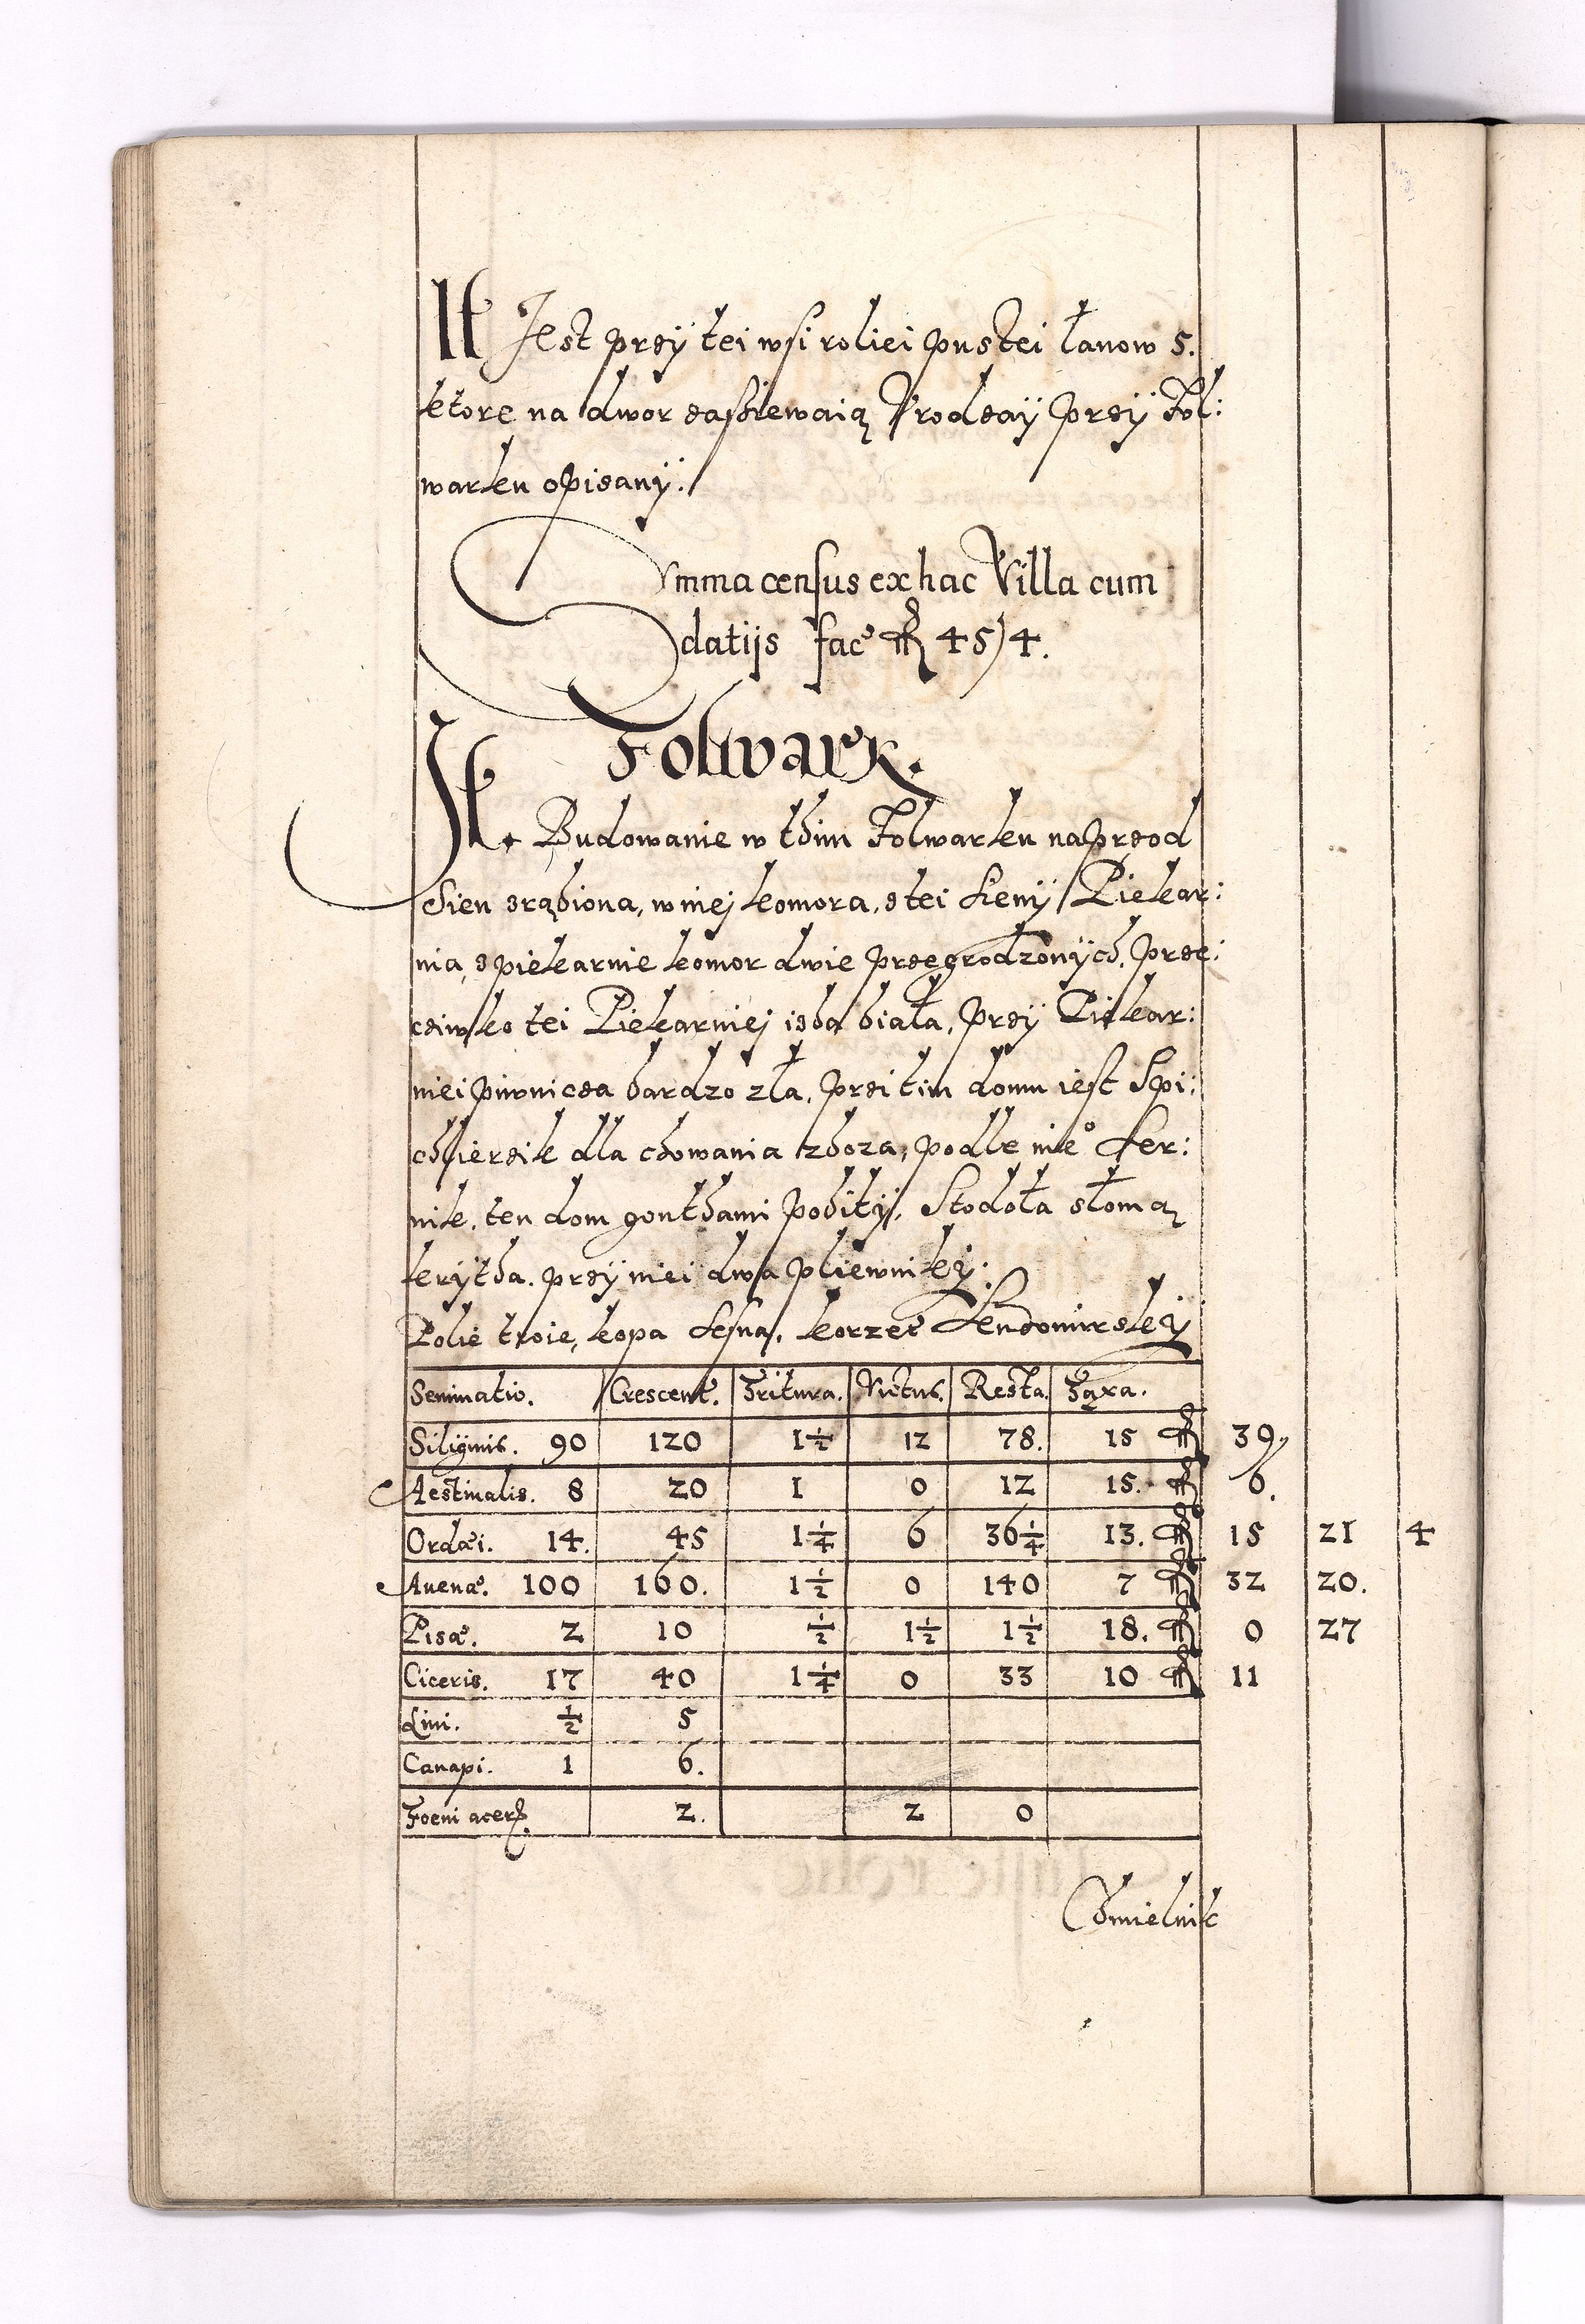 It Jest przÿ tei wsi roliei pustei łanow 5.
ktore na dwor zasziewaią Vrodzaÿ przÿ Fol:
warku opisanÿ.
Summa census ex hac Villa cum
datijs fac 45/4.
Folwark.
It. Budowanie w thim Folwarku naprzod
Sien zrąbiona, w niej komora, z tei sieny Piekar:
nia, z piekarnie komor dwie przegrodzonÿch, prze:
ciwko tei Piekarniej izba biała, przÿ Piekar:
niei piwnicza bardzo zła, przi tim domu iest Spi:
chlierzik dla chowania zboza, podle nie° Ser:
nik, ten dom gonthami pobitÿ, Stodoła słomą
krÿtha. przÿ niei dwa pliewnikÿ:
Polie troie, kopa Lesna, korzec Sendomirskÿ
Seminatio. Crescent. Tritura. Victus. Resta. Taxa.
Siliginis. 90 120 1½ 12 78. 15 39
Aestiualis. 8 20 1 0 12 15. 6.
Ordæi. 14. 45 1¼ 6 36¼ 13. 15 21 4
Auenæ. 100 160. 1½ 0 140 7 32 20.
Pisæ. 2 10 ½ 1½ 1½ 18. 0 27
Ciceris. 17 40 1¼ 0 33 10 11
Lini. ½ 5
Canapi. 1 6.
Foeni acerꝫ 2. 2 0
Chmielnik